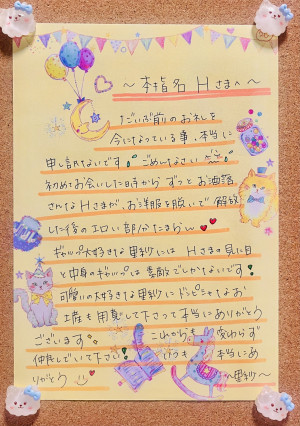 ～本指名 Hさまへ～
だいぶ前のお礼を
今になっている事、本当に
申し訳ないです ごめんなさい
初めてお会いした時から ずっと お洒落
さんなHさまが、お洋服を脱いで 解放
した後のエロい部分たまらん
ギャップ大好きな里紗には Hさまの見た目
と中身のギャップは素敵でしかないです!
可愛いの大好きな里紗にドンピシャなお
土産も用意して下さって本当にありがとう
ございます。 これからも 変わらず
仲良しでいて下さい! いつも 本当にあ
りがとう ～里紗～